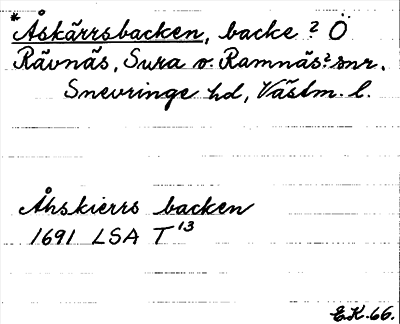 * Åskärrsbacken, backe ? Ö
Rävnäs, Sura o. Ramnäs? snr.
Snevringe hd, Västm. l.
Åhskierrs backen
1691 LSA T 13
E.K. 66.